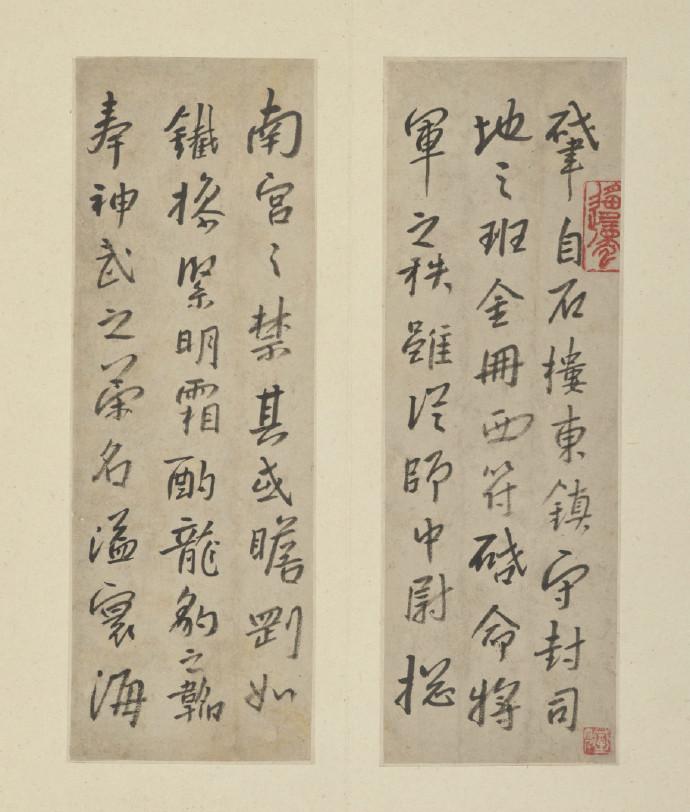 肇自石樓東鎮守封司
地之班金冊西符啓命將
軍之秩雖從師中尉摠
南宮之禁其或膽剛如
鐵操緊明霜酌龍豹之韜
奉神武之策名溢寰海